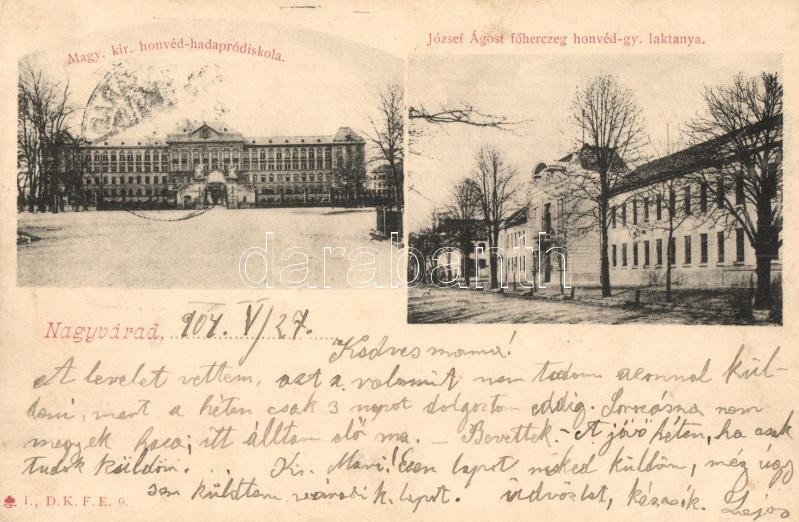 Magy. kir. honvéd-hadapródiskola.
József Ágost főherczeg honvéd-gy. laktanya.
darabanth
Nagyvárad, 904. V/27.
Kedves mama!
A levelet vettem, azt a valamit nem tudom azonnal kül-
deni, mert a héten csak 3 napot dolgoztam eddig. Sorozásra nem
megyek haza; itt álltam elő ma. – Bevettek. – A jövő héten, ha csak
tudok küldöm. . . . Kis Mari! Ezen lapot neked küldöm, még úgy
sem küldtem váradi k. lapot. Üdvözlet, kézcsók. Lajos
I., D. K. F. E. 9.